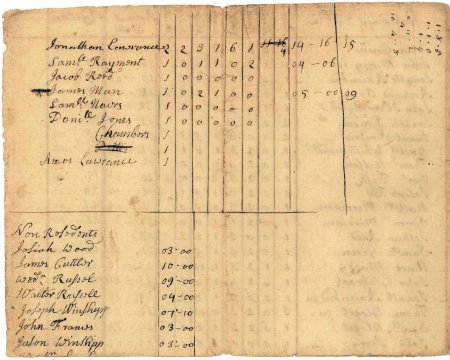 Jonathan Lawrance 2 2 3 1 6 1 14-16 15
Samll Rayment 1 0 1 1 0 2 04-06
Jacob Reed 1 0 0 0 0 0
James Man 1 0 2 1 0 0 05-00 09
Samll 1 0 0 0 0 0
Danill Jones 1 0 0 0 0 0
Chambers 1
1
Amos Lawrance 1
Non Resedents
Josiah Wood 03-00
James Cuttler 10-00
Wedw Russel 09-00
Walter Russell 04-00
Joseph Winship 07-10
John Frames 03-00
Jason Winship 03-00